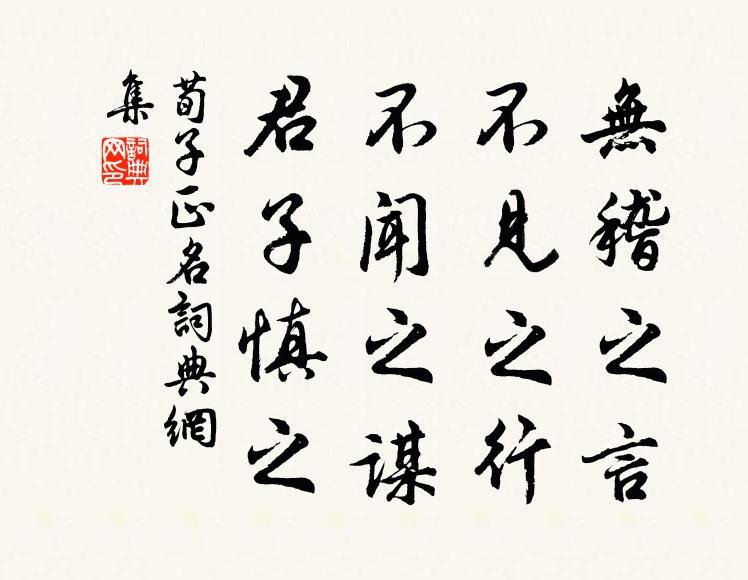 無稽之言
不見之行
不聞之謀
君子慎之
荀子正名詞典網
集
詞典
网印